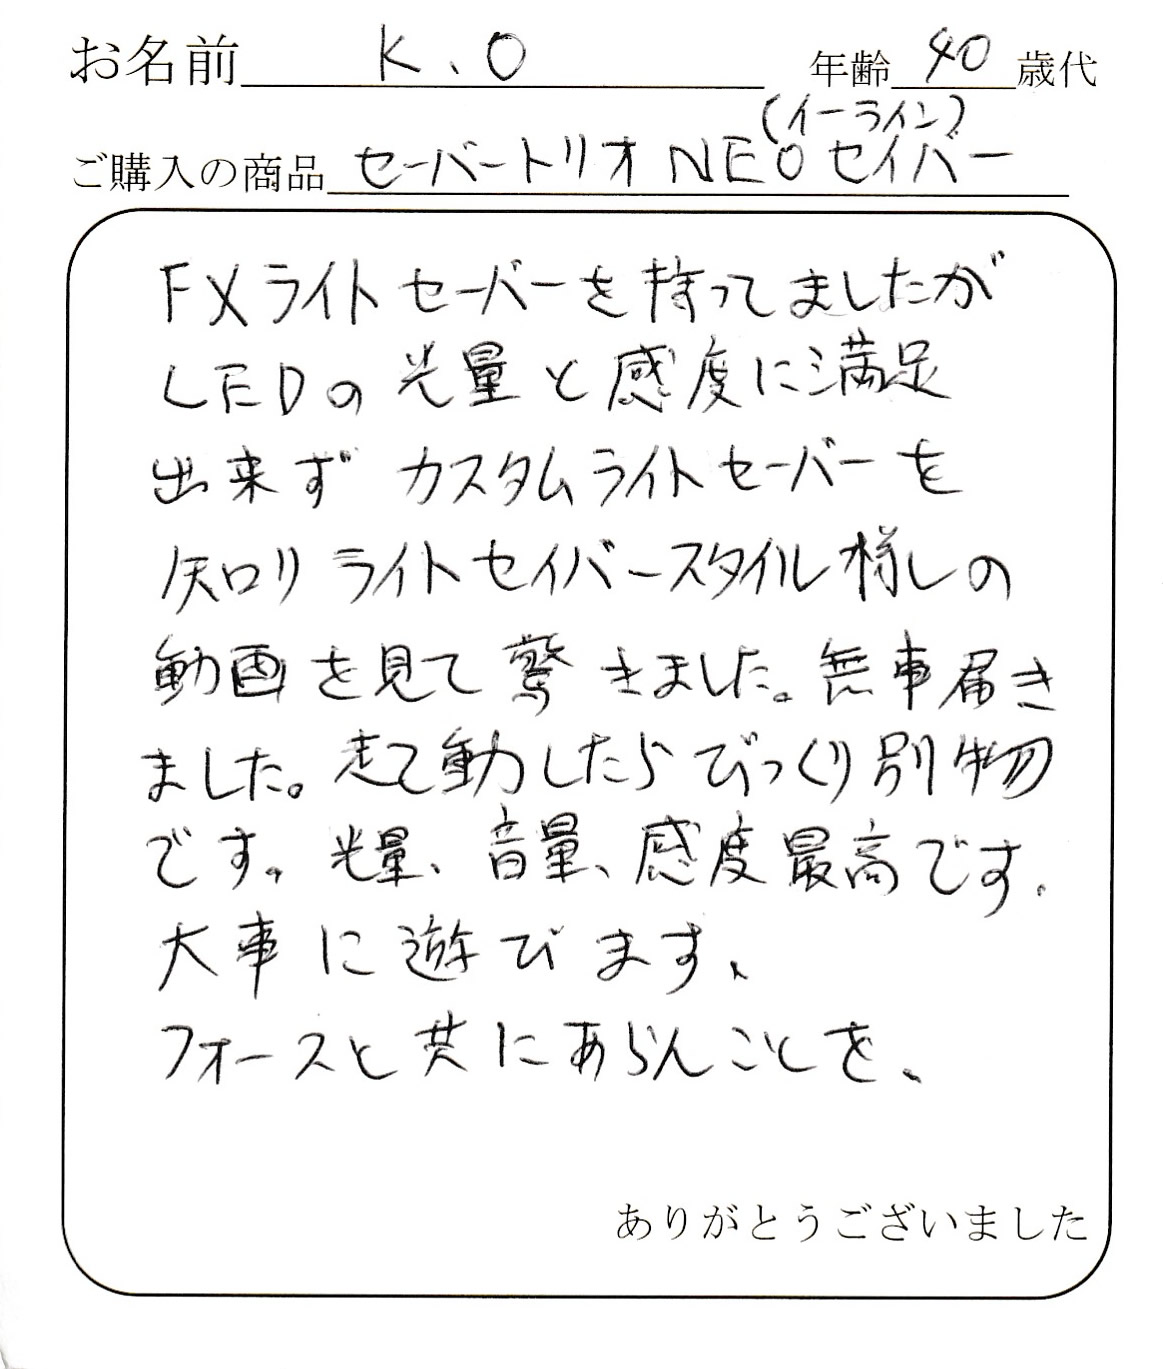 お名前 K.O 年齢 40 歳代
(イーライン)
ご購入の商品 セーバートリオ NEO セイバー
FXライトセーバーを持ってましたが
LEDの光量と感度に満足
出来ず カスタムライトセーバーを
知り ライトセイバースタイル様しの
動画を見て驚きました。無事届き
ました。起動したらびっくり別物
です。光量、音量、感度最高です。
大事に遊びます、
フォースと共にあらんことを、
ありがとうございました